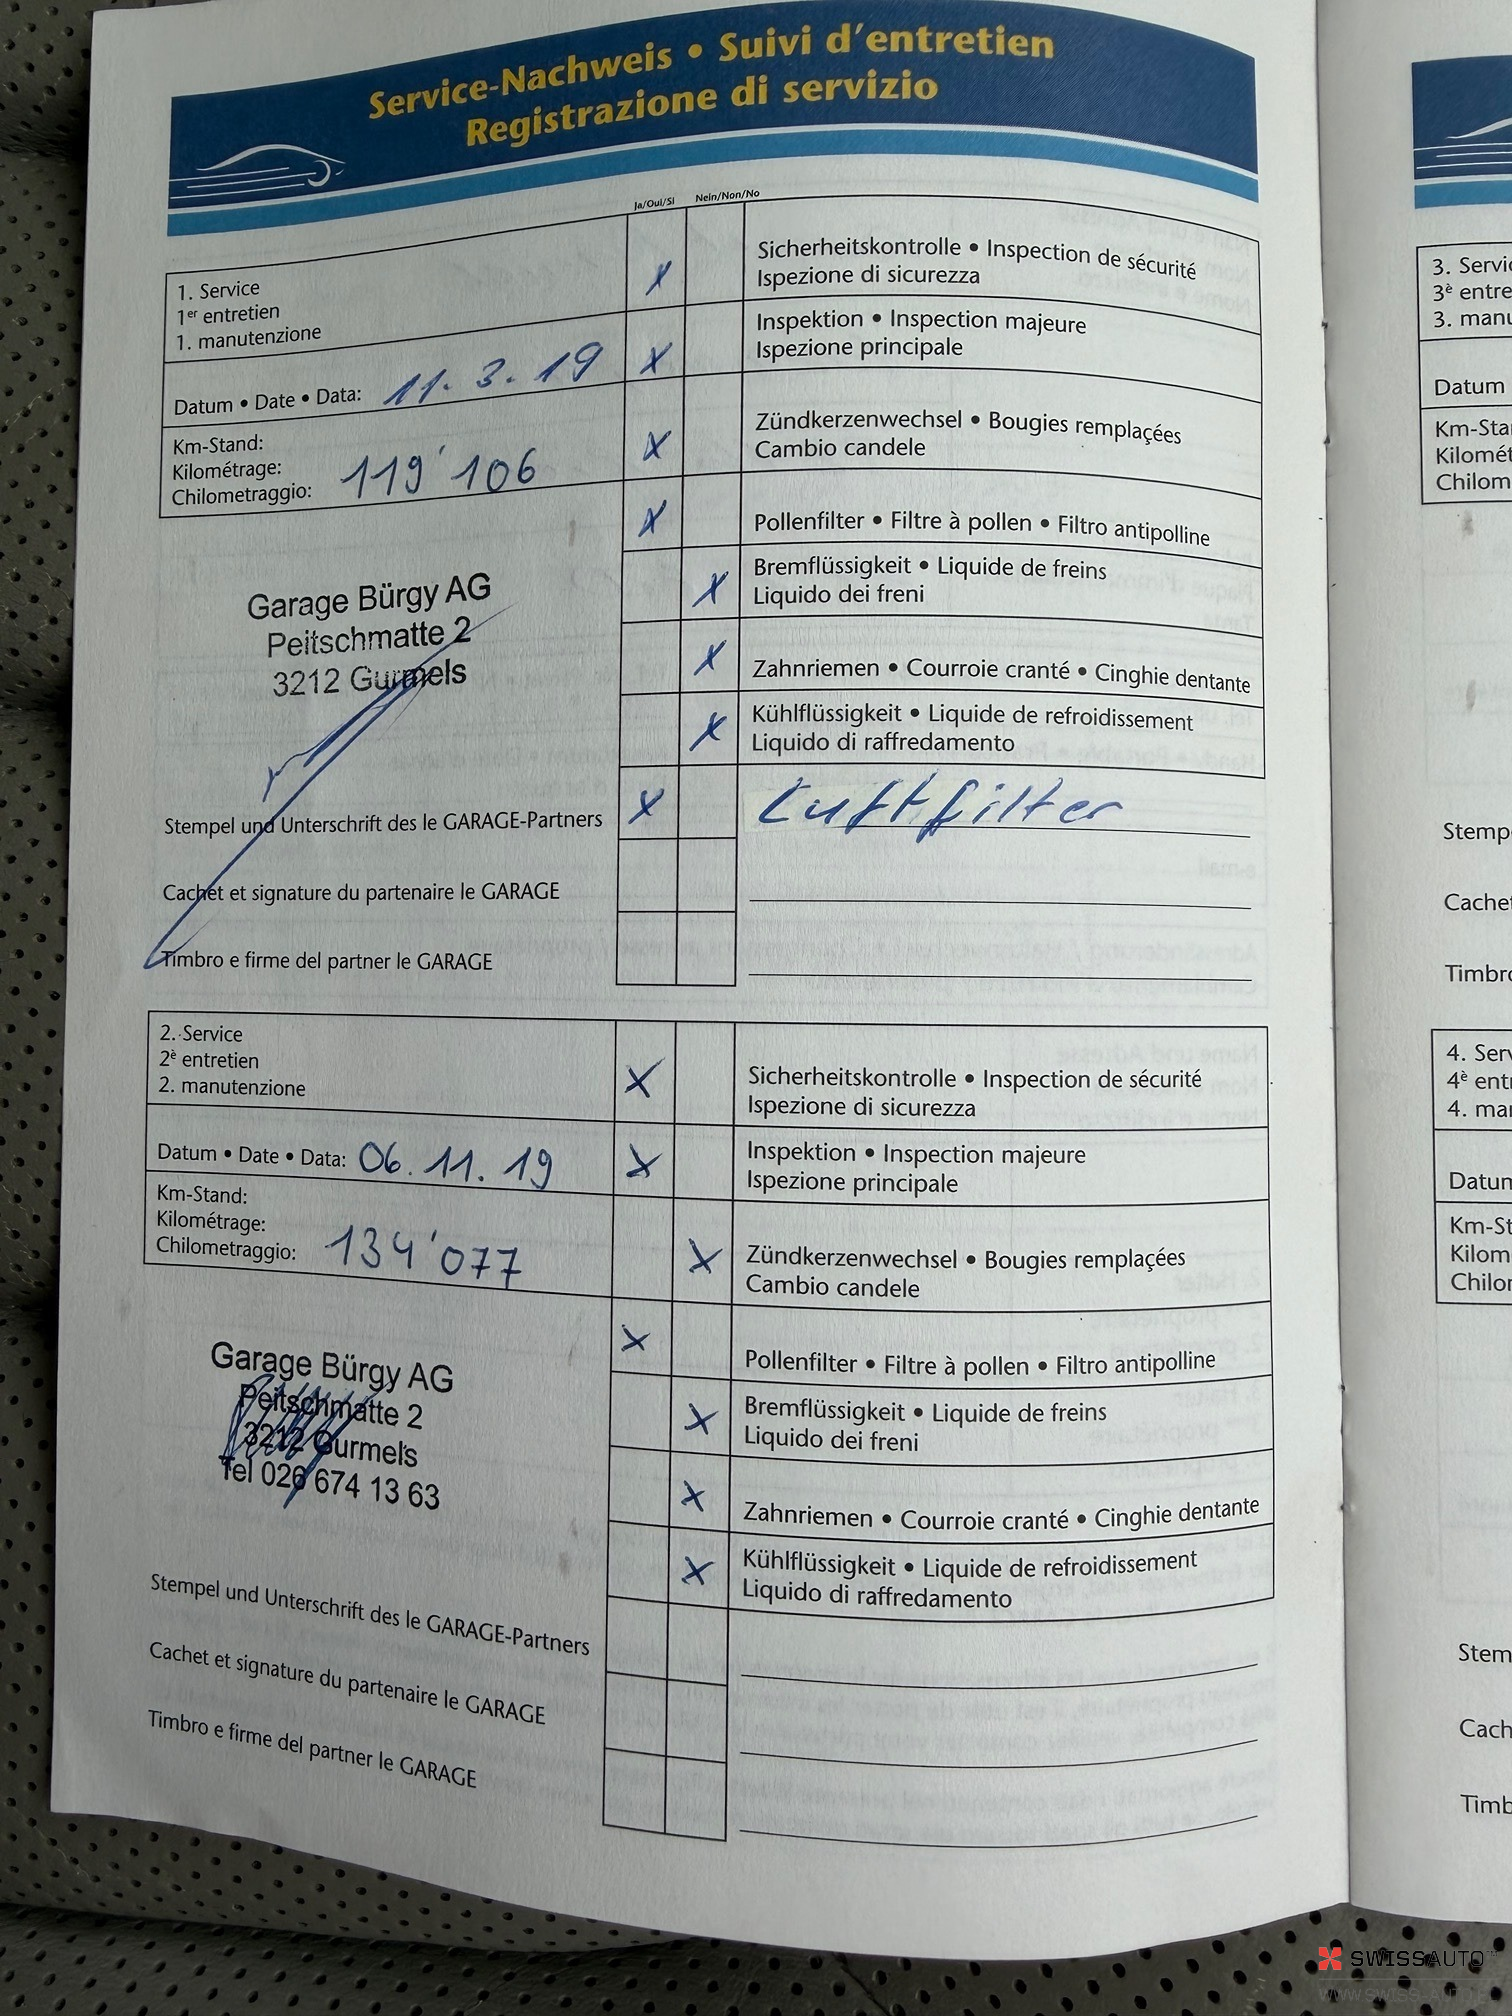 Service-Nachweis • Suivi d'entretien
Registrazione di servizio
Ja/Oui/Si
Nein/Non/No
1. Service
1er entretien
1. manutenzione
Datum • Date • Data: 11. 3. 19
Km-Stand:
Kilométrage:
Chilometraggio: 119'106
Garage Bürgy AG
Peitschmatte 2
3212 Gurmels
Stempel und Unterschrift des le GARAGE-Partners
Cachet et signature du partenaire le GARAGE
Timbro e firme del partner le GARAGE
X Sicherheitskontrolle • Inspection de sécurité
Ispezione di sicurezza
X Inspektion • Inspection majeure
Ispezione principale
X Zündkerzenwechsel • Bougies remplaçées
Cambio candele
X Pollenfilter • Filtre à pollen • Filtro antipolline
X Bremflüssigkeit • Liquide de freins
Liquido dei freni
X Zahnriemen • Courroie cranté • Cinghie dentante
X Kühlflüssigkeit • Liquide de refroidissement
Liquido di raffredamento
X Luftfilter
2. Service
2è entretien
2. manutenzione
Datum • Date • Data: 06. 11. 19
Km-Stand:
Kilométrage:
Chilometraggio: 134'077
Garage Bürgy AG
Peitschmatte 2
3212 Gurmels
Tel 026 674 13 63
Stempel und Unterschrift des le GARAGE-Partners
Cachet et signature du partenaire le GARAGE
Timbro e firme del partner le GARAGE
X Sicherheitskontrolle • Inspection de sécurité
Ispezione di sicurezza
X Inspektion • Inspection majeure
Ispezione principale
X Zündkerzenwechsel • Bougies remplaçées
Cambio candele
X Pollenfilter • Filtre à pollen • Filtro antipolline
X Bremflüssigkeit • Liquide de freins
Liquido dei freni
X Zahnriemen • Courroie cranté • Cinghie dentante
X Kühlflüssigkeit • Liquide de refroidissement
Liquido di raffredamento
3. Servi
3è entre
3. manu
Datum
Km-Sta
Kilomét
Chilom
Stemp
Cachet
Timbro
4. Serv
4è entr
4. mar
Datum
Km-St
Kilom
Chilor
Stem
Cach
Timb
SWISSAUTO